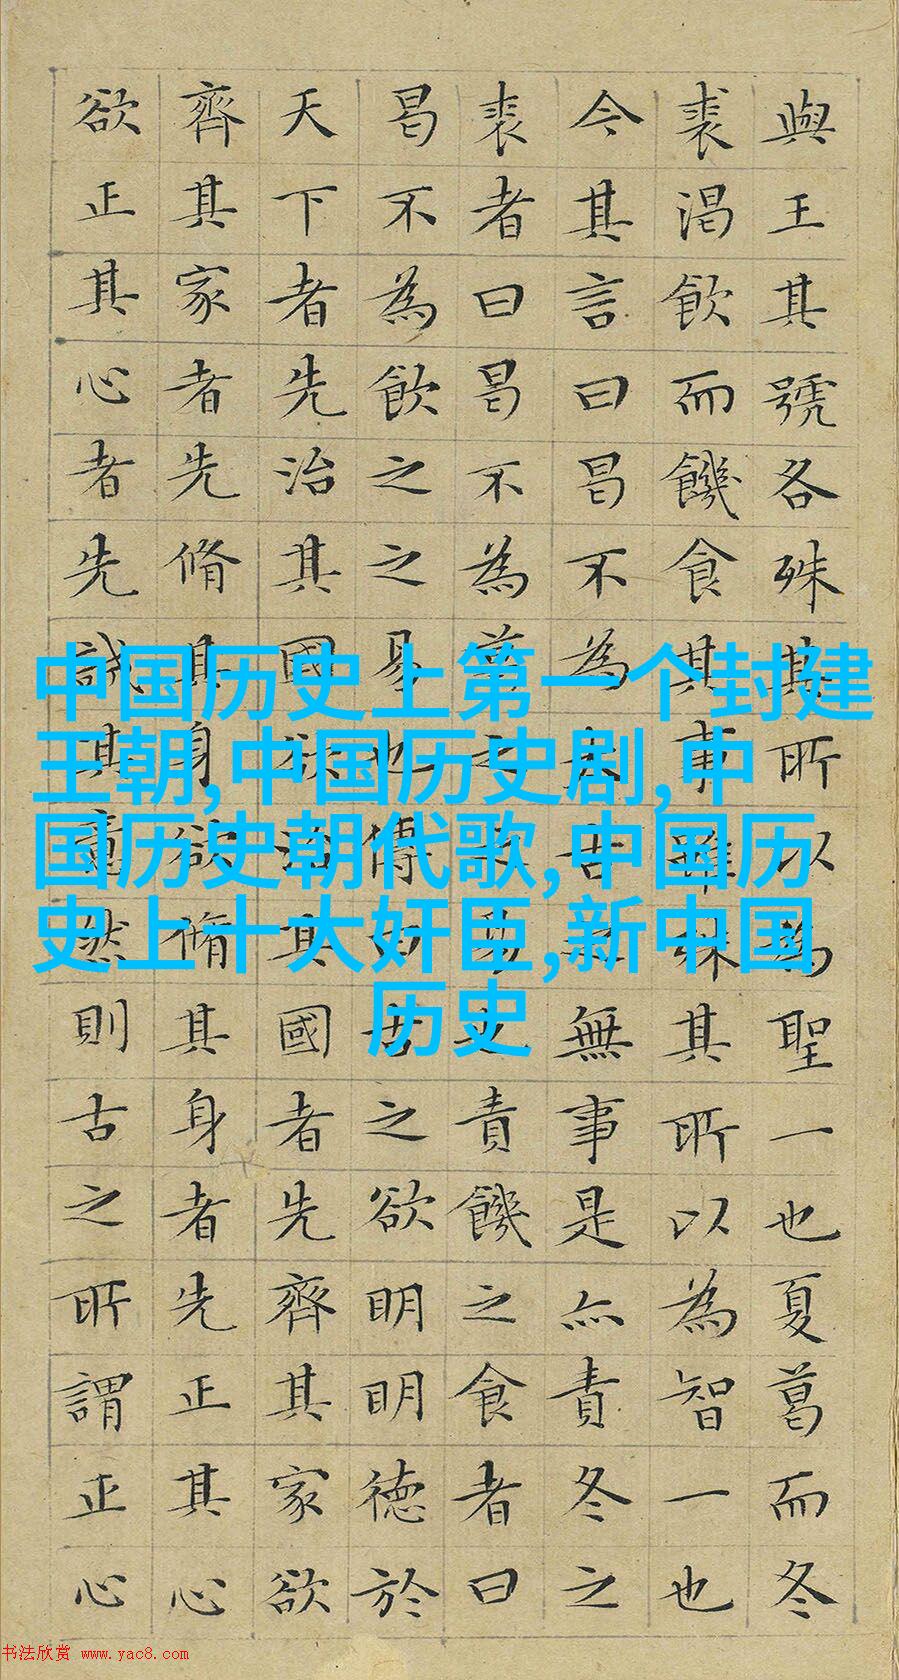 與王其號各殊其所以為聖一也夏葛而冬
裘渴飲而饑食其事雖殊其所以為智一也
今其言曰曷不為太古之無事是亦責冬之
裘者曰曷不為葛之之易也責饑之食者曰
曷不為飲之之易也傳曰古之欲明明德於
天下者先治其國欲治其國者先齊其家欲
齊其家者先脩其身欲脩其身者先正其心
欲正其心者先誠其意然則古之所謂正心
中国历史上第一个封建
王朝,中国历史剧,中
国历史朝代歌,中国历
史上十大奸臣,新中国
历史
书法欣赏 www.yac8.com